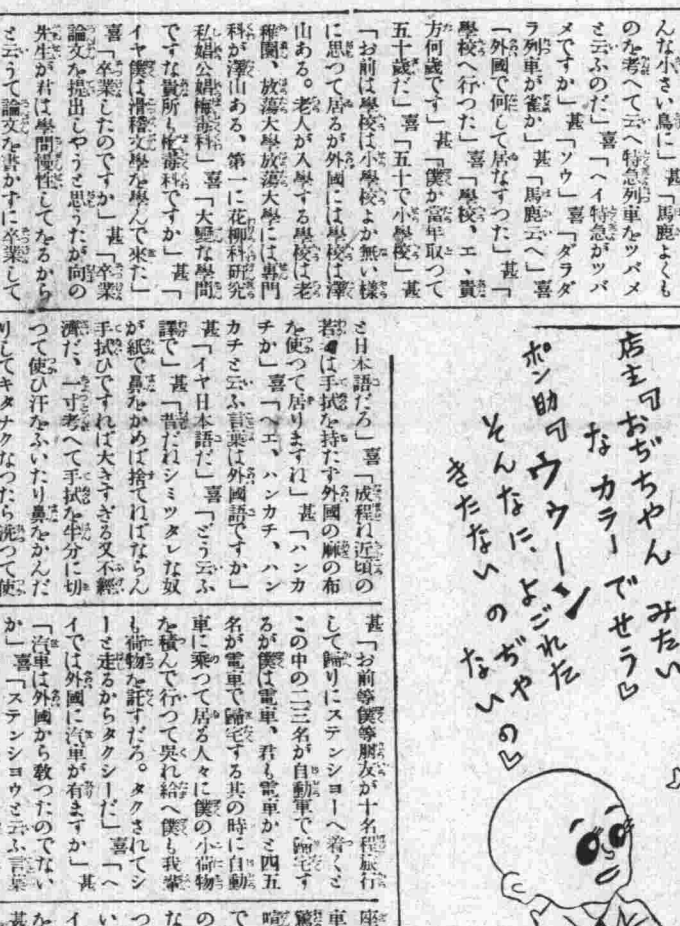 んな小さい鳥に」甚「馬鹿よくも
のを考へて云へ特急列車をツバメ
と云ふのだ」喜「ヘイ特急がツバ
メですか」甚「ソウ」喜「ダラダ
ラ列車が雀か」甚「馬鹿云へ」喜
「外國で何して居なすつた」甚「
學校へ行つた」喜「學校、エ、貴
方何歳です」甚「僕か當年取つて
五十歳だ」喜「五十で小學校」甚
「お前は學校は小學校よか無い樣
に思つて居るが外國には學校は澤
山ある。老人が入學する學校は老
稚園、放蕩大學放蕩大學には專門
科が澤山ある、第一に花柳科研究
私娼公娼梅毒科」喜「大變な學問
ですな貴所も梅毒科ですか」甚「
イヤ僕は滑稽文學を學んで來た」
喜「卒業したのですか」甚「卒業
論文を提出しやうと思うたが向の
先生が君は學問慢性してをるから
と云うて論文を書かずに卒業して
と日本語だろ」喜「成程ね近頃の
若いは手拭を持たず外國の麻の布
を使つて居りますね」甚「ハンカ
チか」喜「ヘエ、ハンカチ、ハン
カチと云ふ言葉は外國語ですか」
甚「イヤ日本語だ」喜「どう云ふ
譯で」甚「昔だれシミツタレな奴
が紙で鼻をかめば捨てねばならん
手拭ひですれば大きすぎる又不經
濟だ、一寸考へて手拭を半分に切
つて使ひ汗をふいたり鼻をかんだ
りしてキタナクなつたら洗つて使
店主『おぢちやん みたい
な カラー でせう』
ポン助『ウゥーン
そんなに、よごれた
きたないの ぢや
ないの』
甚「お前等僕等朋友が十名程旅行
して歸りにステンシヨーへ着くと
この中の二三名が自動車で歸宅す
るが僕は電車、君も電車かと四五
名が電車で歸宅する其の時に自動
車に乘つて居る人々に僕の小荷物
を積んで行つて呉れ給へ僕も我輩
も荷物を託すだろ。タクされてシ
ーと走るからタクシーだ」喜「ヘ
イでは外國に汽車が有ますか」甚
「汽車は外國から敎つたのでない
か」喜「ステンシヨウと云ふ言葉